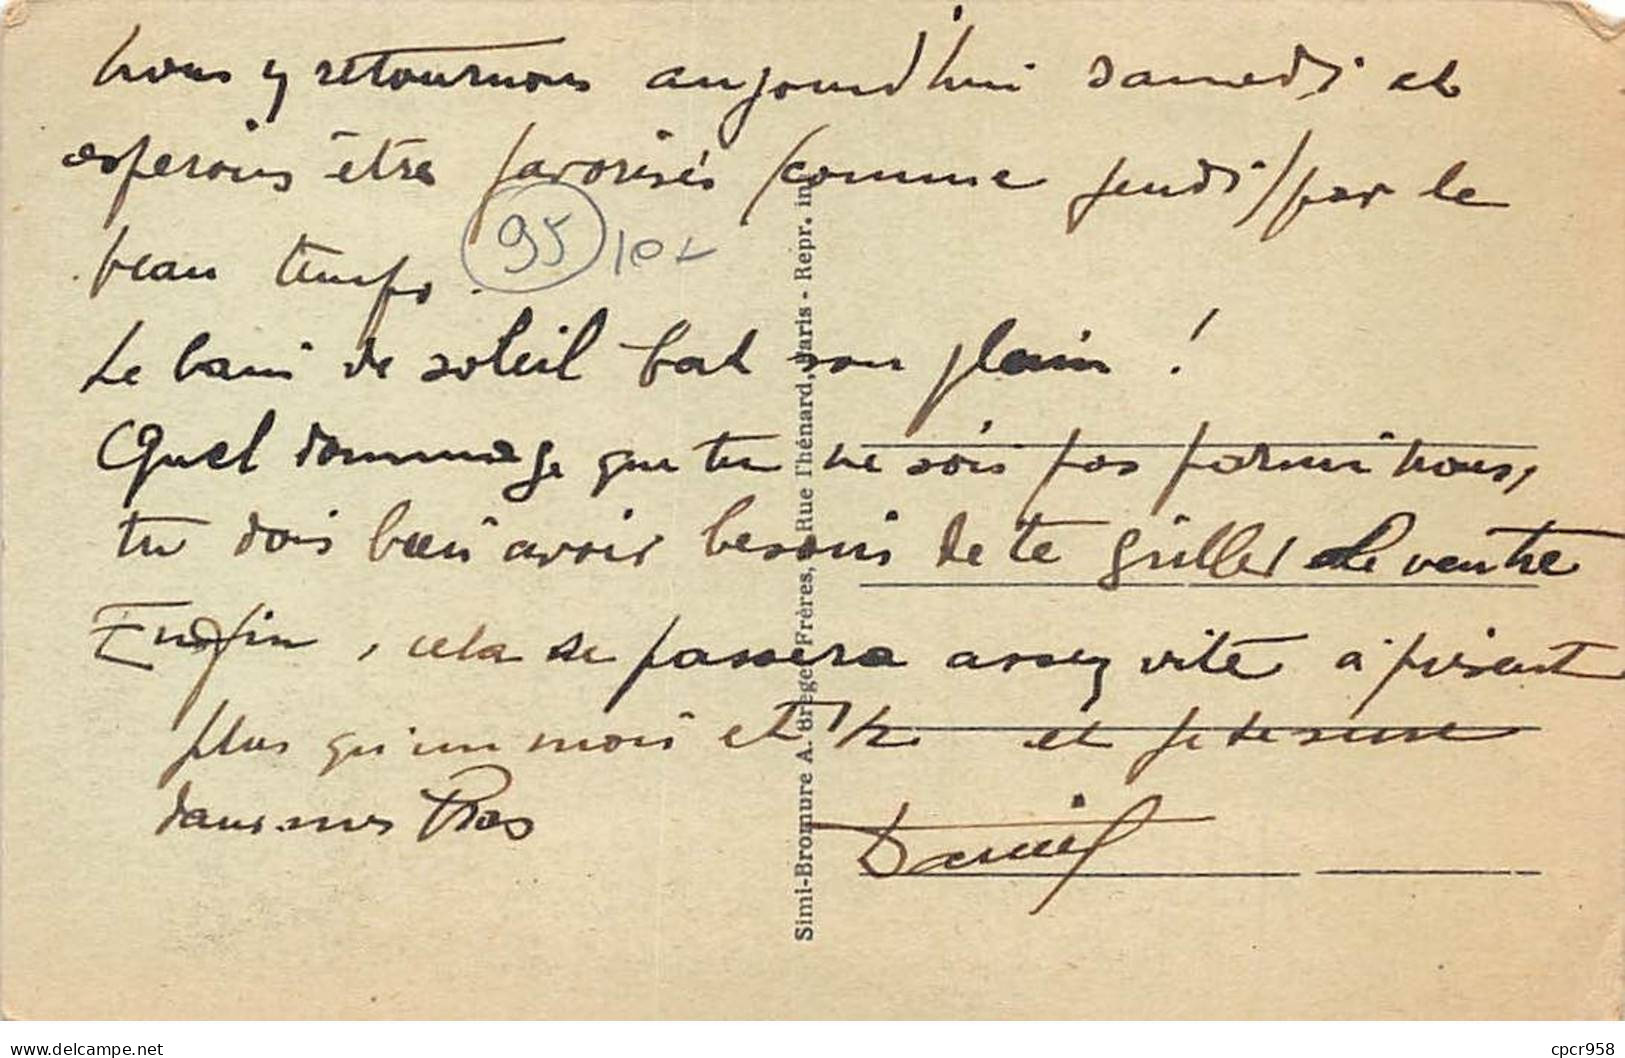 nous y retournons aujourd'hui samedi et
esperons être favorisés (comme jeudi) par le
beau temps.
95 10
Le bain de soleil bat son plein !
Quel dommage que tu ne sois pas parmi nous,
tu dois bien avoir besoin de te griller le ventre
Enfin, cela se passera assez vite à présent
plus qu'un mois et 1/2 et je te serre
dans mes bras
Daniel
Simi-Bromure A. Breger Frères, Rue Thénard, Paris - Repr. in
delcampe.net
cpcr958